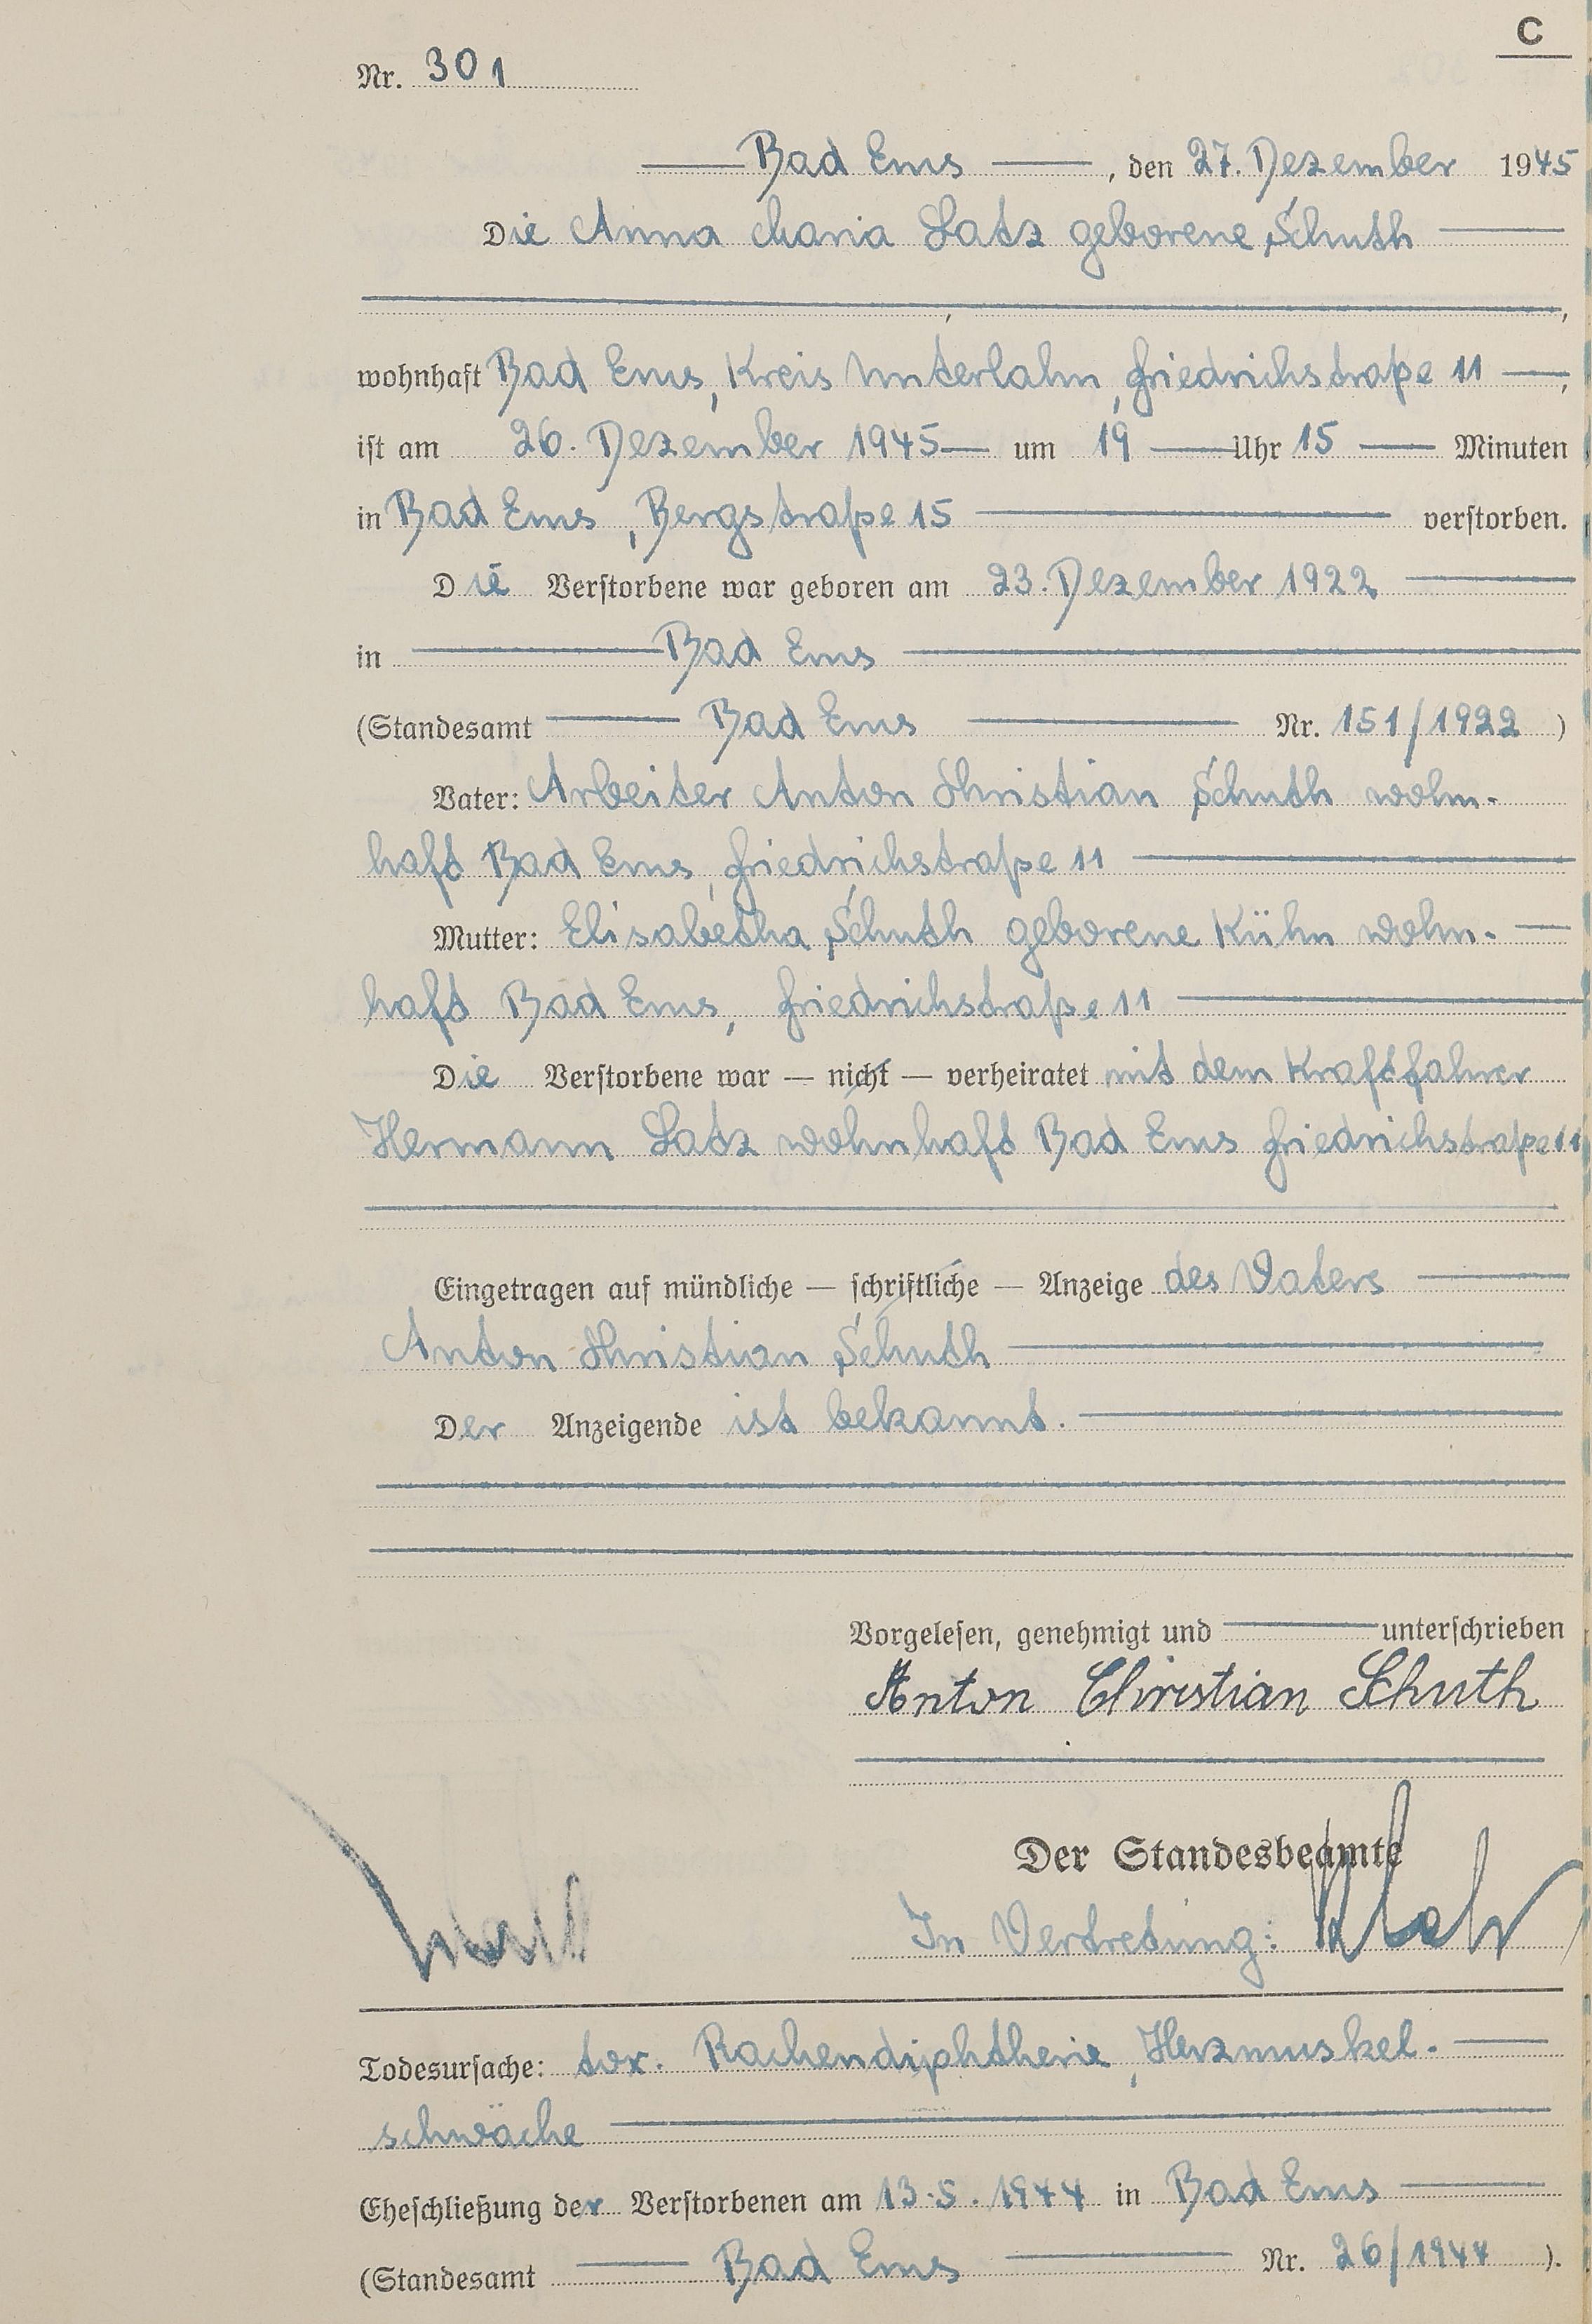 C
Nr. 301
Bad Ems, den 27. Dezember 1945
Die Anna Maria Satz geborene Schuth
,
wohnhaft Bad Ems, Kreis Unterlahn, Friedrichstraße 11,
ist am 26. Dezember 1945 um 19 Uhr 15 Minuten
in Bad Ems, Bergstraße 15 verstorben.
Die Verstorbene war geboren am 23. Dezember 1922
in Bad Ems
(Standesamt Bad Ems Nr. 151/1922)
Vater: Arbeiter Anton Christian Schuth wohn-
haft Bad Ems, Friedrichstraße 11
Mutter: Elisabetha Schuth geborene Kühn wohn-
haft Bad Ems, Friedrichstraße 11
Die Verstorbene war — nicht — verheiratet mit dem Kraftfahrer
Hermann Satz wohnhaft Bad Ems Friedrichstraße 11
Eingetragen auf mündliche — schriftliche — Anzeige des Vaters
Anton Christian Schuth
Der Anzeigende ist bekannt.
Vorgelesen, genehmigt und unterschrieben
Anton Christian Schuth
Der Standesbeamte
In Vertretung:
Todesursache: tox. Rachendiphtherie, Herzmuskel-
schwäche
Eheschließung der Verstorbenen am 13.5.1944 in Bad Ems
(Standesamt Bad Ems Nr. 26/1944).